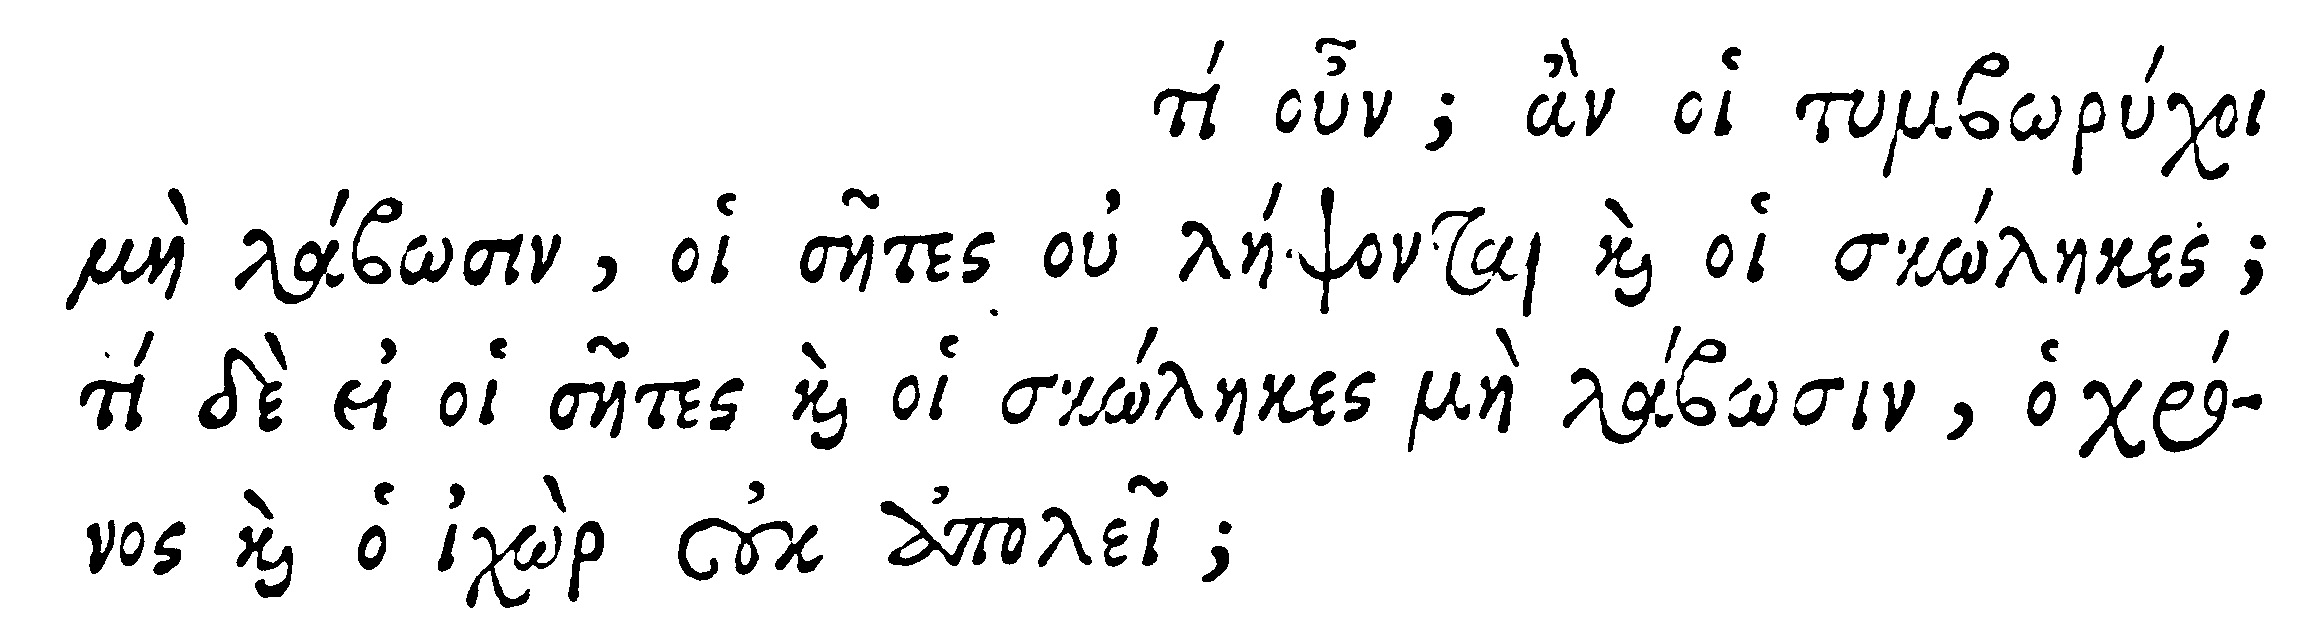 τί οὖν; ἂν οἱ τυμβωρύχοι
μὴ λάβωσιν, οἱ σῆτες οὐ λήψονται ϗ̀ οἱ σκώληκες;
τί δὲ εἰ οἱ σῆτες ϗ̀ οἱ σκώληκες μὴ λάβωσιν, ὁ χρό-
νος ϗ̀ ὁ ἰχὼρ οὐκ ἀπολεῖ;